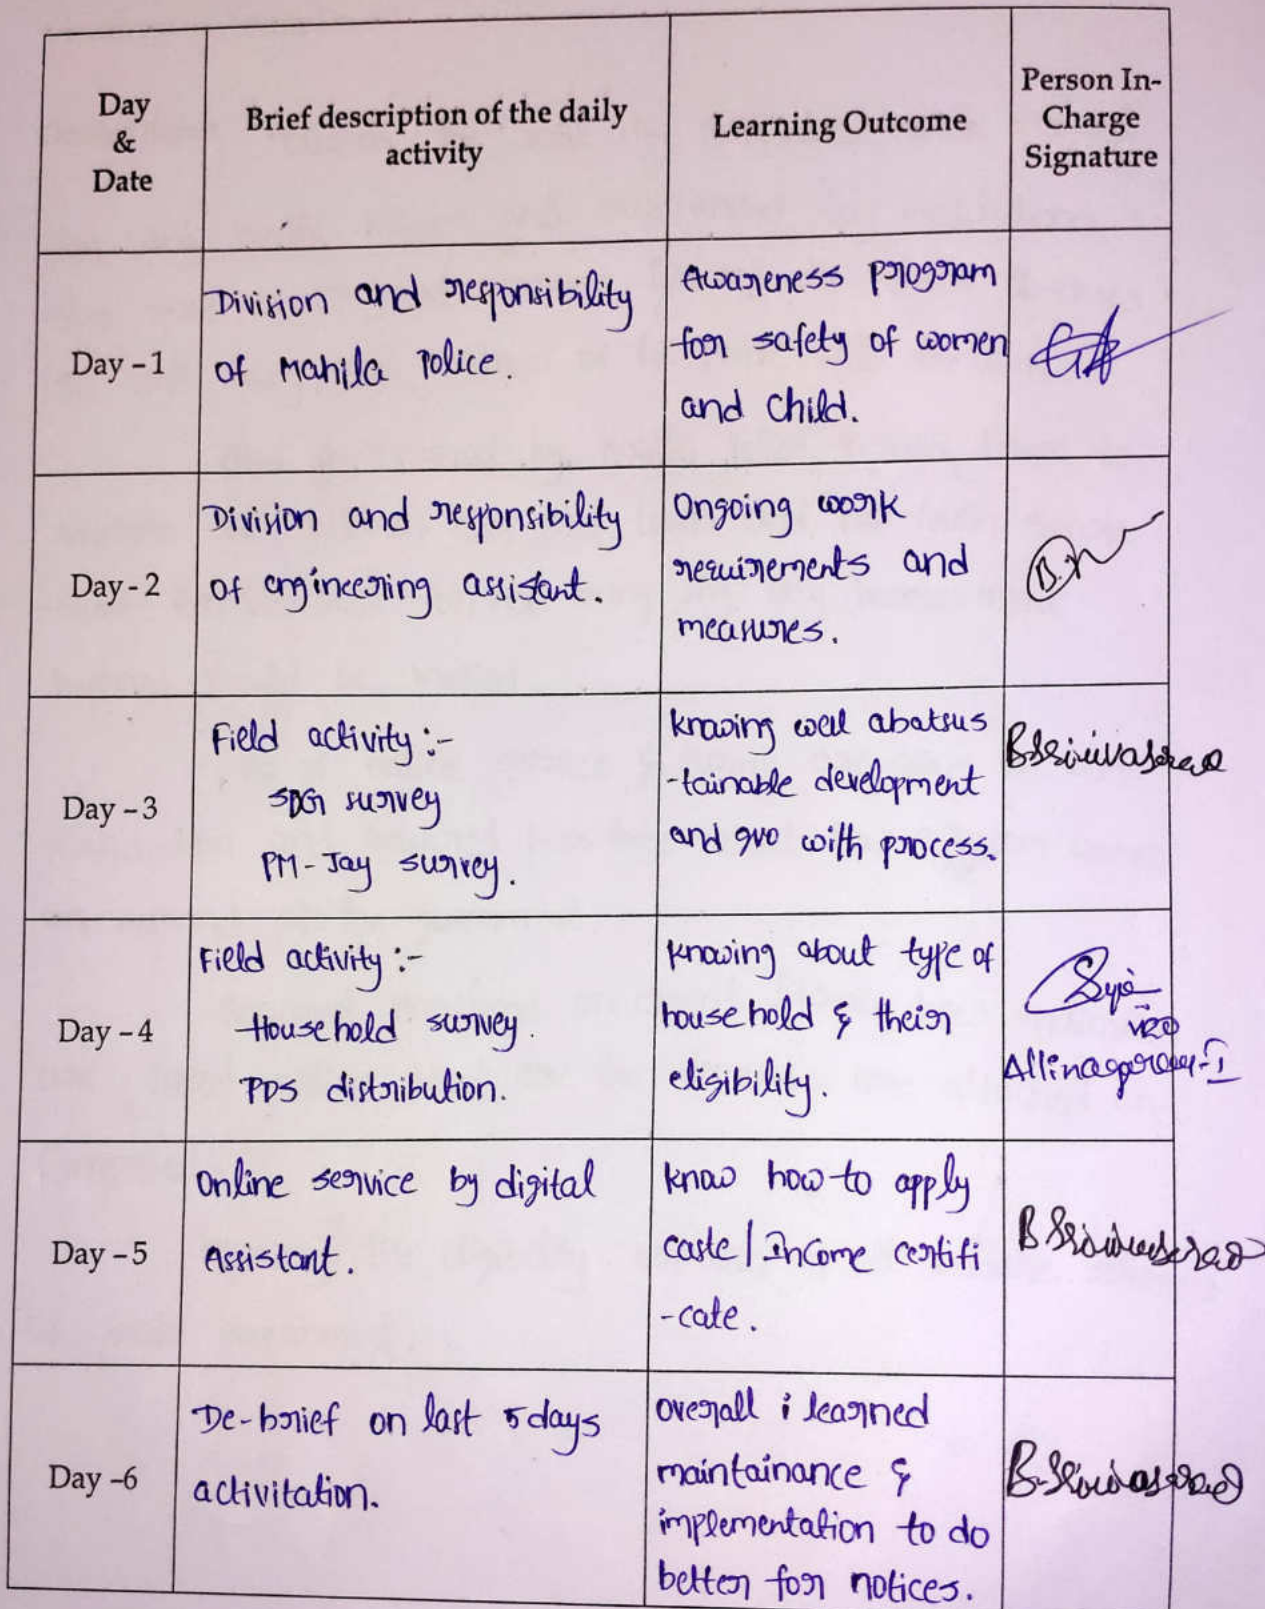 Day
&
Date
Brief description of the daily
activity
Learning Outcome
Person In-
Charge
Signature
Day - 1
Division and responsibility
of Mahila Police.
Awareness program
for safety of women
and child.
Day - 2
Division and responsibility
of engineering assistant.
Ongoing work
requirements and
measures.
Day - 3
Field activity :-
SDG survey
PM-Jay survey.
knowing well abatsus
-tainable development
and gvo with process.
B Srinivasarao
Day - 4
Field activity :-
Household survey.
PDS distribution.
knowing about type of
household & their
eligibility.
VRO
Day - 5
Online service by digital
Assistant.
know how to apply
caste / Income certifi
-cate.
B Srinivasarao
Day -6
De-brief on last 5 days
activitation.
overall i learned
maintainance &
implementation to do
better for notices.
B. Srinivasarao